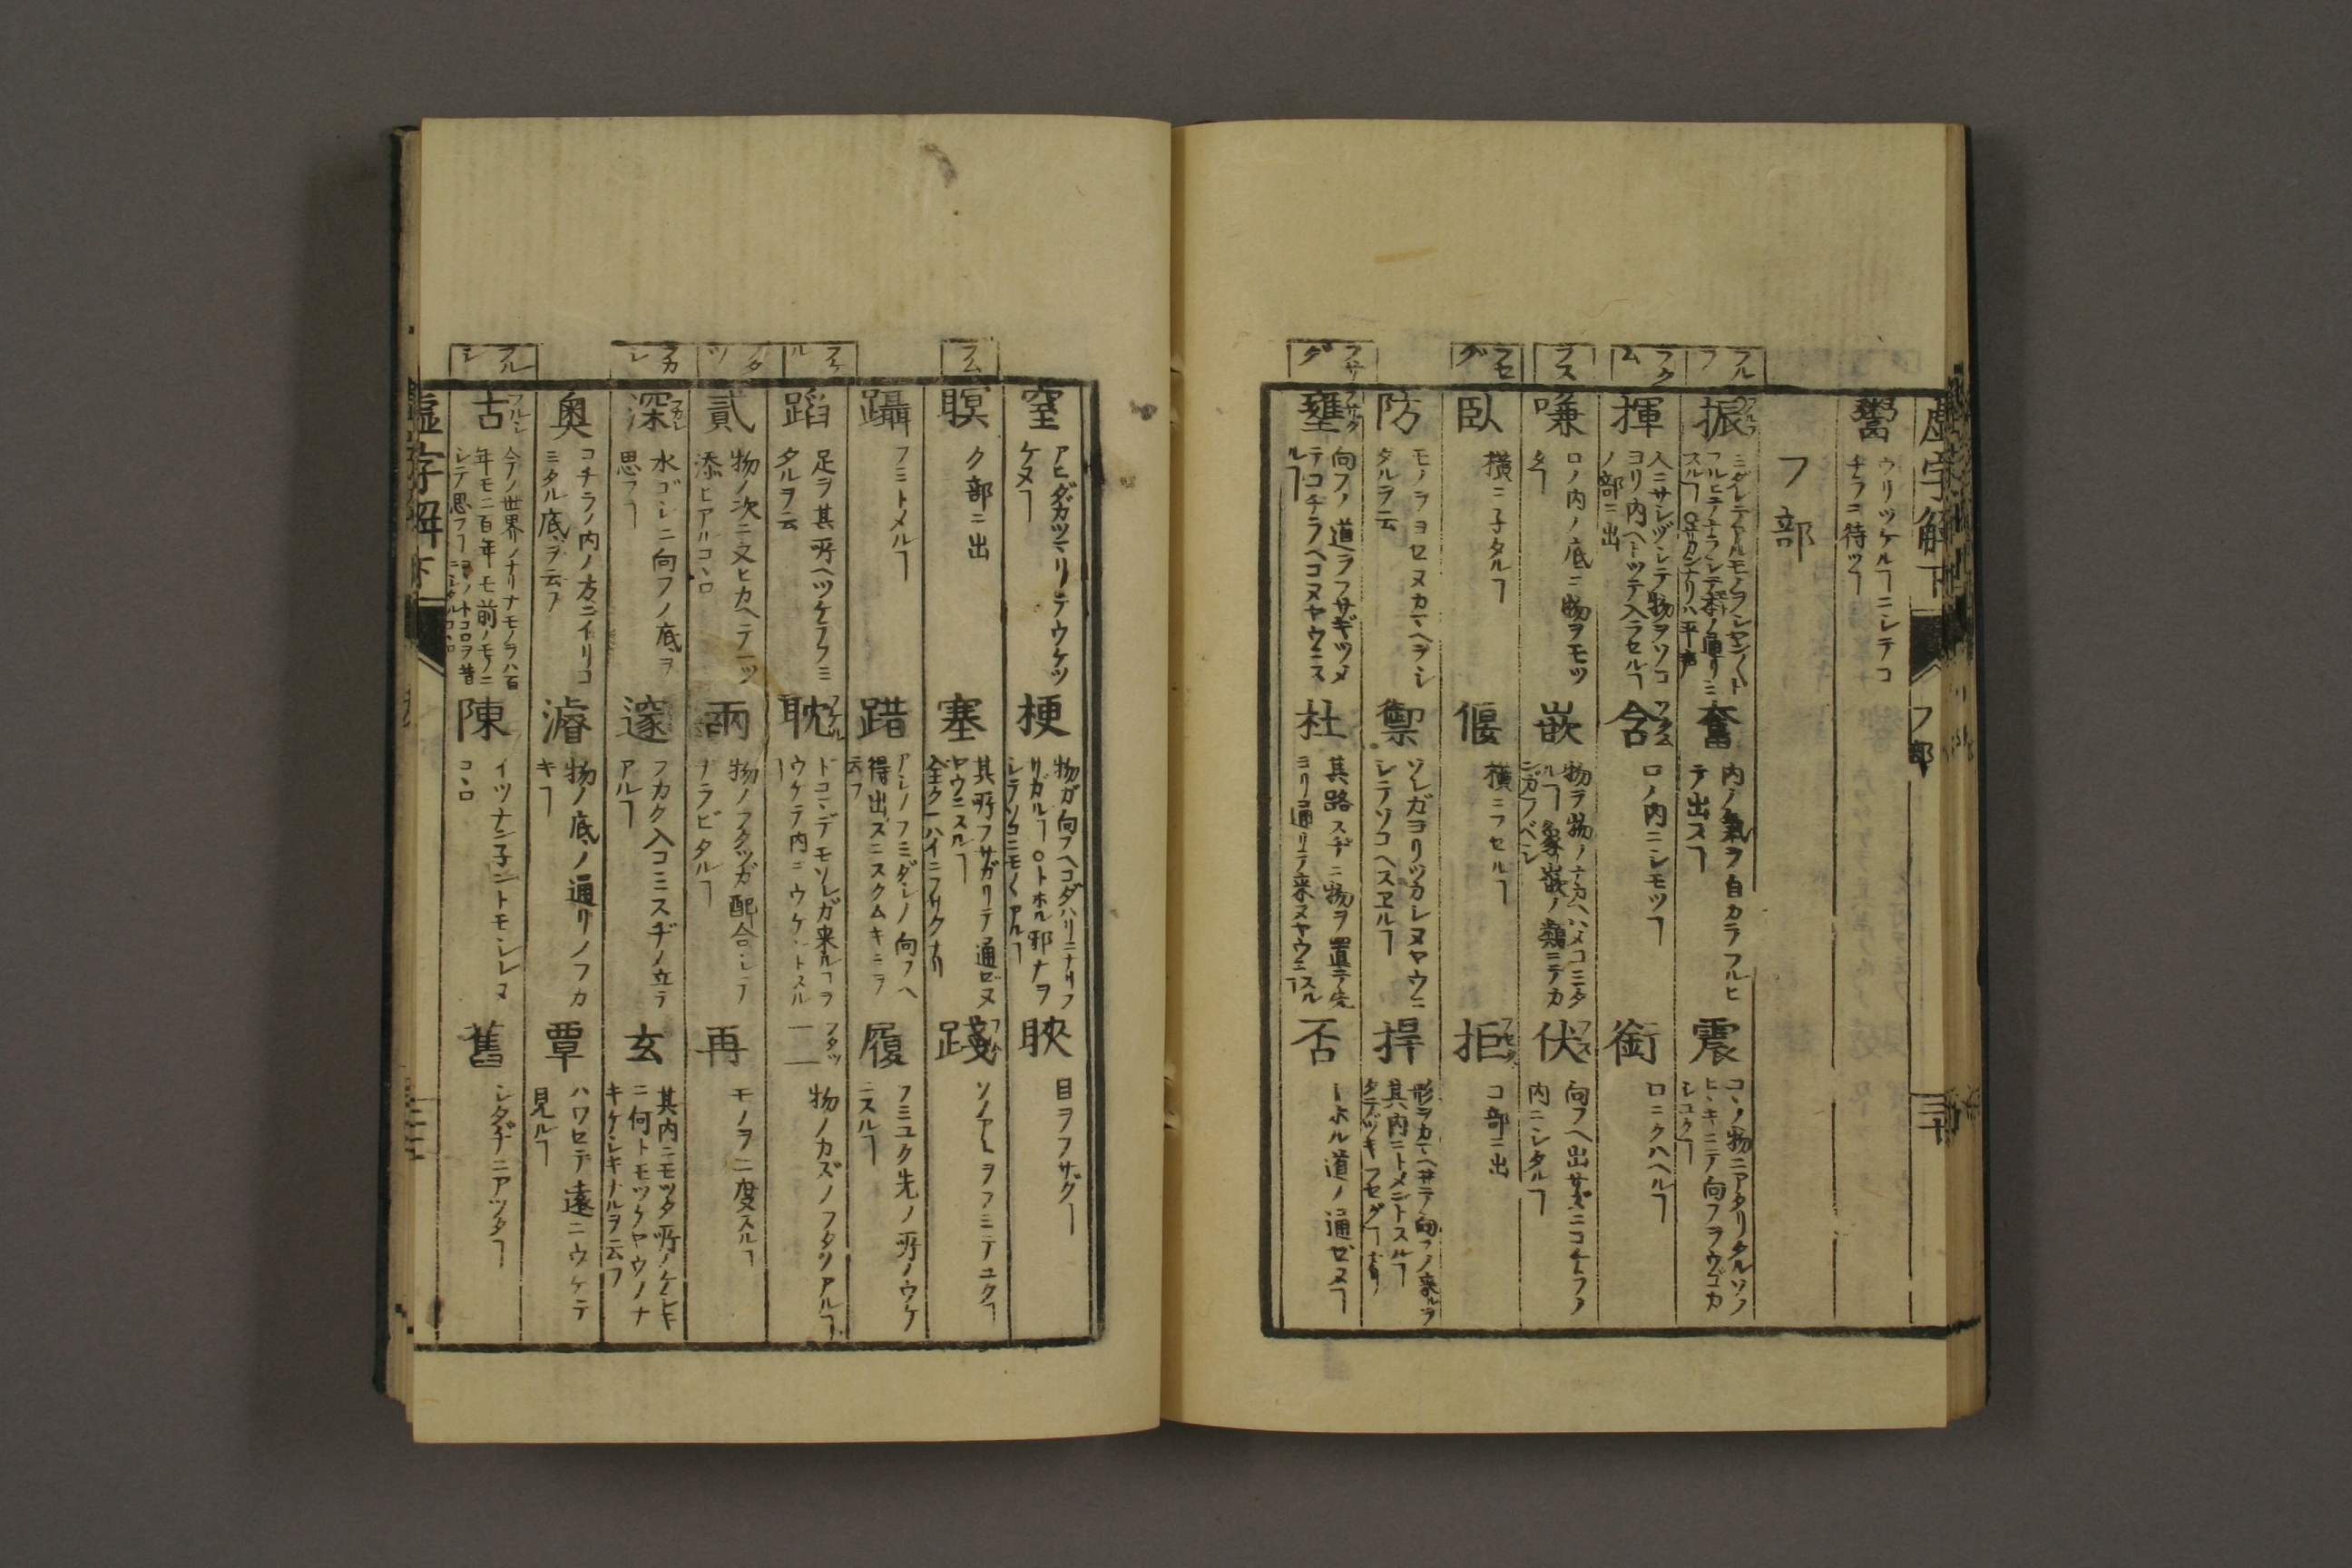 虚字解下
フ部
三十
鬻
ウリツケルヿニシテコ
チラニ待ツヿ
フ部
フルフ
振
フルフ
スルヿ
奮
内ノ氣ヲ自カラフルヒ
テ出スヿ
震
コヽノ物ニアタリタルソノ
ヒヾキニテ向フヲウゴカ
シユクヿ
フクム
揮
人ニサシヅシテ物ヲソコ
ヨリ内ヘトツテ入ラセルヿ
ノ部ニ出
含
フクム
口ノ内ニシモツヿ
銜
口ニクハヘルヿ
フス
嗛
口ノ内ノ底ニ物ヲモツ
タヿ
嵌
物ヲ物ノナカヘハメコミタ
ルヿ象嵌ノ類ニテカ
ンガフベシ
伏
フス
向フヘ出サズニコチラノ
内ニシタルヿ
フセグ
臥
横ニ子タルヿ
偃
横ニフセルヿ
拒
フセグ
コ部ニ出
防
モノヲヨセヌカマヘヲシ
タルヲ云
禦
ソレガヨリツカレヌヤウニ
シテソコヘスヱルヿ
捍
其内ニトメントスルヿ
フサグ
壅
フサグ
向フノ道ヲフサギツメ
テコチラヘコヌヤウニス
ルヿ
杜
其路スヂニ物ヲ置テ先
ヨリ通リテ来ヌヤウニスル
ヿ
否
トホル道ノ通ゼヌヿ
窒
アヒダガツマリテウケツ
ケヌヿ
梗
物ガ向フヘコダハリニナリフ
サガルヿ○トホル邪ナヲ
䀹
目ヲフサグヿ
フム
瞑
ク部ニ出
塞
其所フサガリテ通ゼヌ
ヤウニスルヿ
全ク一ハイニフサグナリ
踐
フム
ソノアトヲフミテユクヿ
躡
フミトメルヿ
踖
アシノフミダシノ向フヘ
得出ズニスクムキミヲ
云フ
履
フミユク先ノ所ノウケ
ニスルヿ
フケル
蹈
足ヲ其所ヘツケテフミ
タルヲ云
耽
フケル
ドコマデモソレガ来ルヿヲ
ウケテ内ニウケントスル
ヿ
二
フタツ
物ノカズノフタツアルヿ
フタツ
貳
物ノ次ニ又ヒカヘテ一ツ
添ヒアルコヽロ
兩
物ノフタツガ配合シテ
ナラビタルヿ
再
モノヲ二度スルヿ
フカシ
深
フカシ
水ゴシニ向フノ底ヲ
思フヿ
邃
フカク入コミスヂノ立テ
アルヿ
玄
其内ニモツタ所ノケヒキ
ニ何トモツケヤウノナ
キケシキナルヲ云フ
奥
コチラノ内ノ方ニイリコ
ミタル底ヲ云フ
濬
物ノ底ノ通リノフカ
キヿ
覃
ハワセテ遠ニウケテ
見ルヿ
フルシ
古
フルシ
今ノ世界ノナリナモノヲハ百
年モ二百年モ前ノモノニ
シテ思フヿ
陳
イツナン子ントモシレヌ
コヽロ
舊
シタヂニアツタヿ
虚字解下